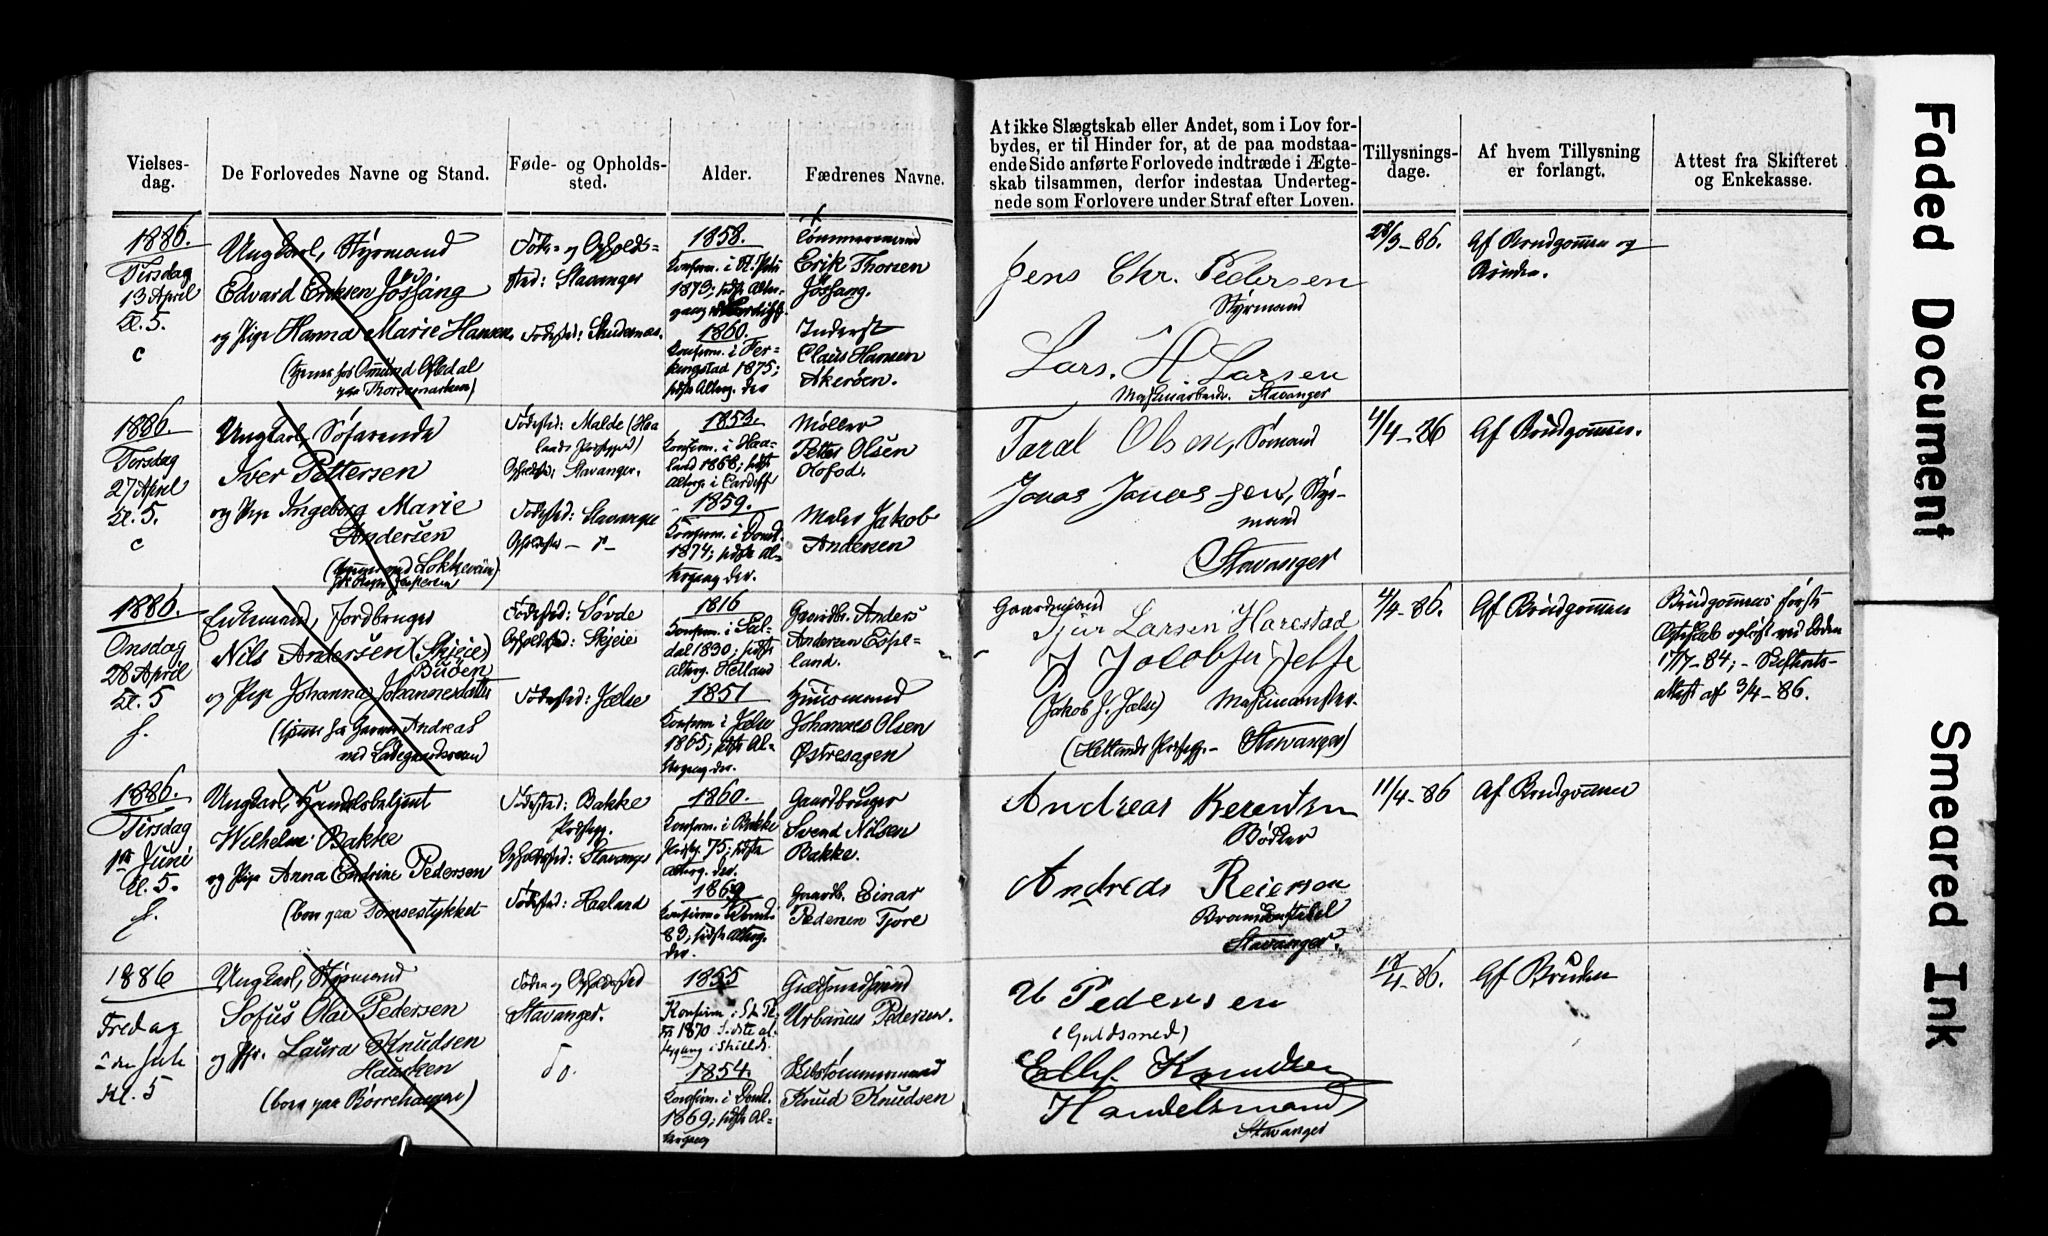 Vielses-
dag.
De Forlovedes Navne og Stand.
Føde- og Opholds-
sted.
Alder.
Fædrenes Navne.
At ikke Slægtskab eller Andet, som i Lov for-
bydes, er til Hinder for, at de paa modstaa-
ende Side anførte Forlovede indtræde i Ægte-
skab tilsammen, derfor indestaa Underteg-
nede som Forlovere under Straf efter Loven.
Tillysnings-
dage.
Af hvem Tillysning
er forlangt.
Attest fra Skifteret
og Enkekasse.
1886.
Tirsdag
13 April
Kl. 5.
c
Ungkarl, Styrmand
Edvard Eriksen Jössang
og Pige Hanna Marie Hansen
(tjener hos Omund Ofsedal
paa
Føde- og Opholds-
sted: Stavanger
Fødested: Skudesnæs.
1858.
Konfirm. i St. Petri
1873; sidste Alter-
gang
1860.
Konfirm. i Fer-
kingstad 1875;
sidste Alterg. der
Tömmermand
Erik Thorsen
Jössang.
Inderst
Claus Hansen
Akeröen.
Jens Chr. Pedersen
Styrmand
Lars. H. Larsen
Stavanger
28/3-86.
Af Brudgommen og
Bruden.
1886.
Torsdag
27 April
Kl. 5.
c
Ungkarl, Söfarende
Iver Pettersen
og Pige Ingeborg Marie
Andersen
Fødested: Malde (Haa
lands Præstegjeld)
Opholdsted: Stavanger.
Fødested: Stavanger
Opholdsted - " -
1853.
Konfirm. i Haa-
land 1868; sidste
Alterg. i Cardiff
1859.
Konfirm. i Domk.
1874; sidste Al-
tergang der.
Møller
Petter Olsen
Maler Jakob
Andersen
Taral Olsen, Sömand
Jonas Jonassen, Styr-
mand
Stavanger
4/4-86
Af Brudgommen.
1886.
Onsdag
28 April
Kl. 5
f.
Enkemand, Jordbruger
Nils Andersen (Skjeie)
og Pige Johanna Johannesdatter
Andreas
ved Ladegaardsveien
Fødested: Søvde
Opholdsted: Skjeie
Fødested: Jælse
1816
Konfirm. i Sal-
dal 1830; sidste
Alterg. Helland
1851
Konfirm i Jælse
1865; sidste Al-
tergang der.
Gaardbr. Anders
Andersen Espe-
land.
Huusmand
Johannes Olsen
Østresagen
Gaardmand
Tjur Larsen Harestad
J Jacobsen Jelse
(Jakob J. Jælse)
(Hetlands Præstegj. - Stavanger)
4/4-86.
Af Brudgommen
Brudgommens første
Ægteskab opløst ved Døden
17/7-84; - Skifterets-
attest af 3/4-86.
1886.
Tirsdag
1ste Juni
Kl. 5.
f.
Ungkarl, Handelsbetjent
Wilhelm Bakke
og Pige Anna Endrine Pedersen
(bor paa Tomsestykket
Fødested: Bakke
Præstegj.
Opholdsted: Stavanger
Fødested: Haaland
1860.
Konfirm. i Bakke
Præstegj. 75; sidste
Alterg. der.
Konfirm. i Domk.
83; sidste Alterg.
der.
Gaardbruger
Svend Nilsen
Bakke.
Gaardb. Einar
Pedersen Tjore
Andreas Berentsen
Bødker
Andreas Reiersen
Stavanger.
11/4-86
Af Brudgommen
1886
Fredag
Kl. 5
Ungkarl, Styrmand
Sofus Olai Pedersen
og Pige. Laura Knudsen
Hausken
(bor paa Børrehaugen)
Føde og Opholdsted
Stavanger.
Do.
1855
Konfirm. i St. Pe
tri 1870 Sidste al-
tergang i
1854.
Konfirm. i Domk.
1869; sidste Al-
tergang
Guldsmedsvend
Urbanus Pedersen.
Knud Knudsen
U Pedersen
(Guldsmed)
Knudsen
Handelsmand
Stavanger
Af Bruden
Faded Document
Smeared Ink